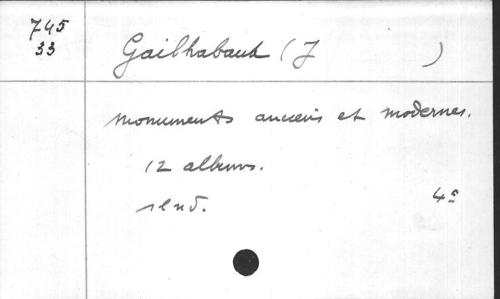 745
33
Gailhabaud (J )
monuments anciens et modernes.
12 albums.
s l n d. 4º